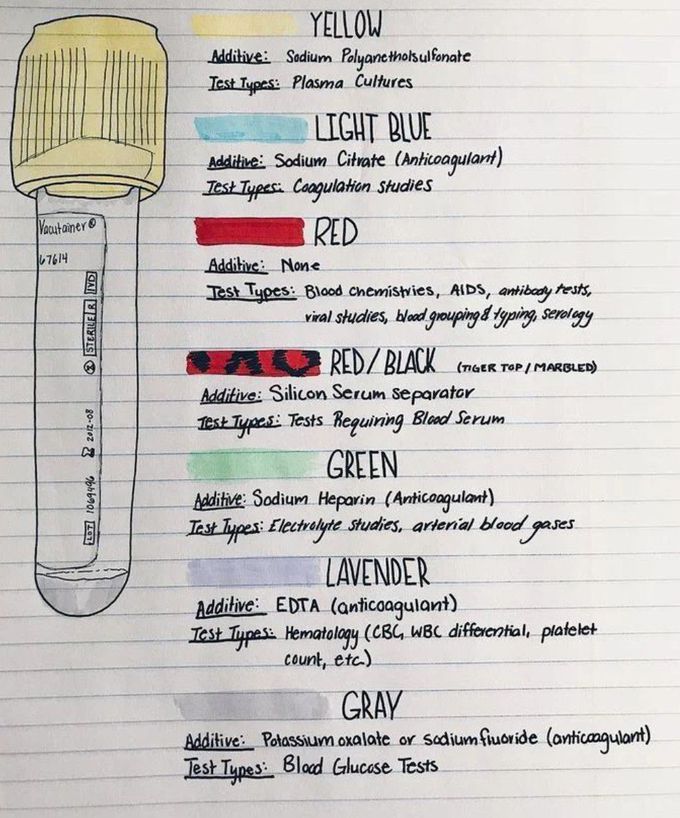 YELLOW
Additive: Sodium Polyanetholsulfonate
Test Types: Plasma Cultures
LIGHT BLUE
Additive: Sodium Citrate (Anticoagulant)
Test Types: Coagulation studies
Vacutainer®
67614
STERILE R IVD
2012-08
LOT 1069496
RED
Additive: None
Test Types: Blood chemistries, AIDS, antibody tests,
viral studies, blood grouping & typing, serology
RED/BLACK (TIGER TOP / MARBLED)
Additive: Silicon Serum separator
Test Types: Tests Requiring Blood Serum
GREEN
Additive: Sodium Heparin (Anticoagulant)
Test Types: Electrolyte studies, arterial blood gases
LAVENDER
Additive: EDTA (anticoagulant)
Test Types: Hematology (CBC, WBC differential, platelet
count, etc.)
GRAY
Additive: Potassium oxalate or sodium fluoride (anticoagulant)
Test Types: Blood Glucose Tests